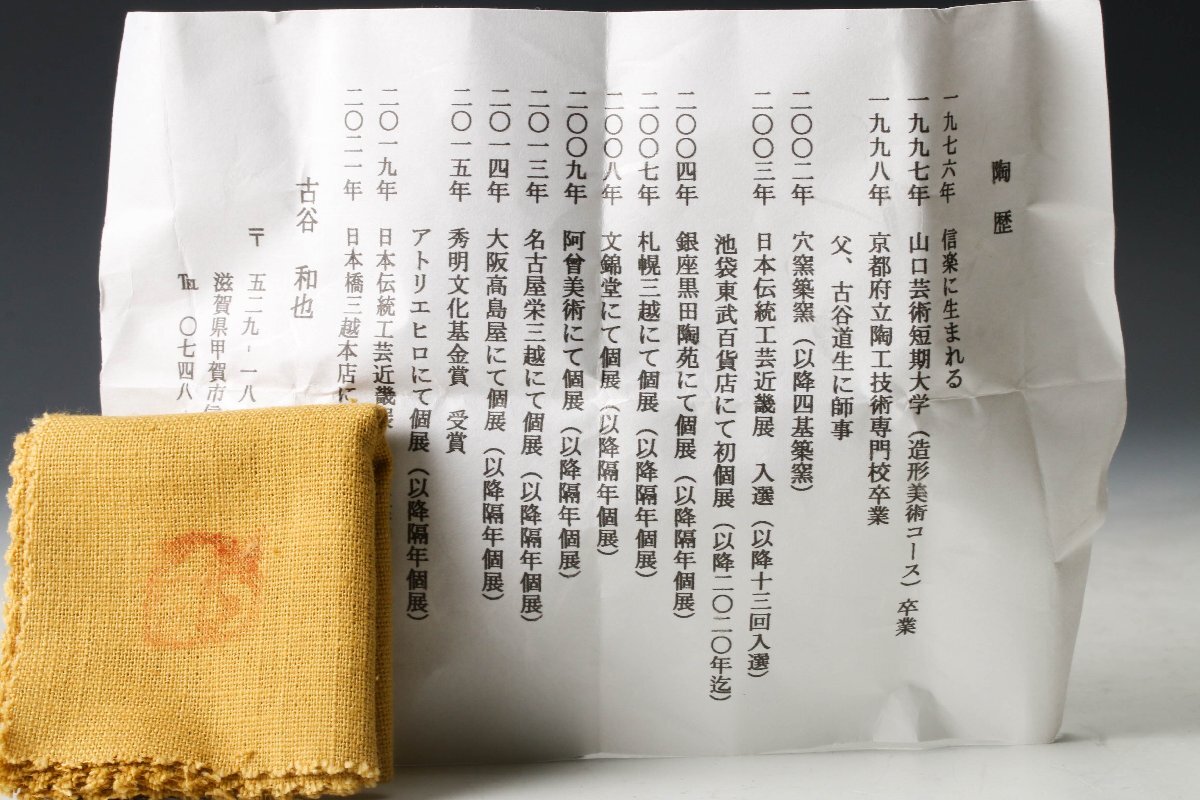 陶歴
一九七六年 信楽に生まれる
一九九七年 山口芸術短期大学（造形美術コース）卒業
一九九八年 京都府立陶工技術専門校卒業
父、古谷道生に師事
二〇〇二年 穴窯築窯（以降四基築窯）
二〇〇三年 日本伝統工芸近畿展 入選（以降十三回入選）
池袋東武百貨店にて初個展（以降二〇二〇年迄）
二〇〇四年 銀座黒田陶苑にて個展（以降隔年個展）
二〇〇七年 札幌三越にて個展（以降隔年個展）
二〇〇八年 文錦堂にて個展（以降隔年個展）
二〇〇九年 阿曾美術にて個展（以降隔年個展）
二〇一三年 名古屋栄三越にて個展（以降隔年個展）
二〇一四年 大阪髙島屋にて個展（以降隔年個展）
二〇一五年 秀明文化基金賞 受賞
アトリエヒロにて個展（以降隔年個展）
二〇一九年 日本伝統工芸近畿展
二〇二一年 日本橋三越本店に
古谷 和也
〒 五二九-一八
滋賀県甲賀市
℡ 〇七四八